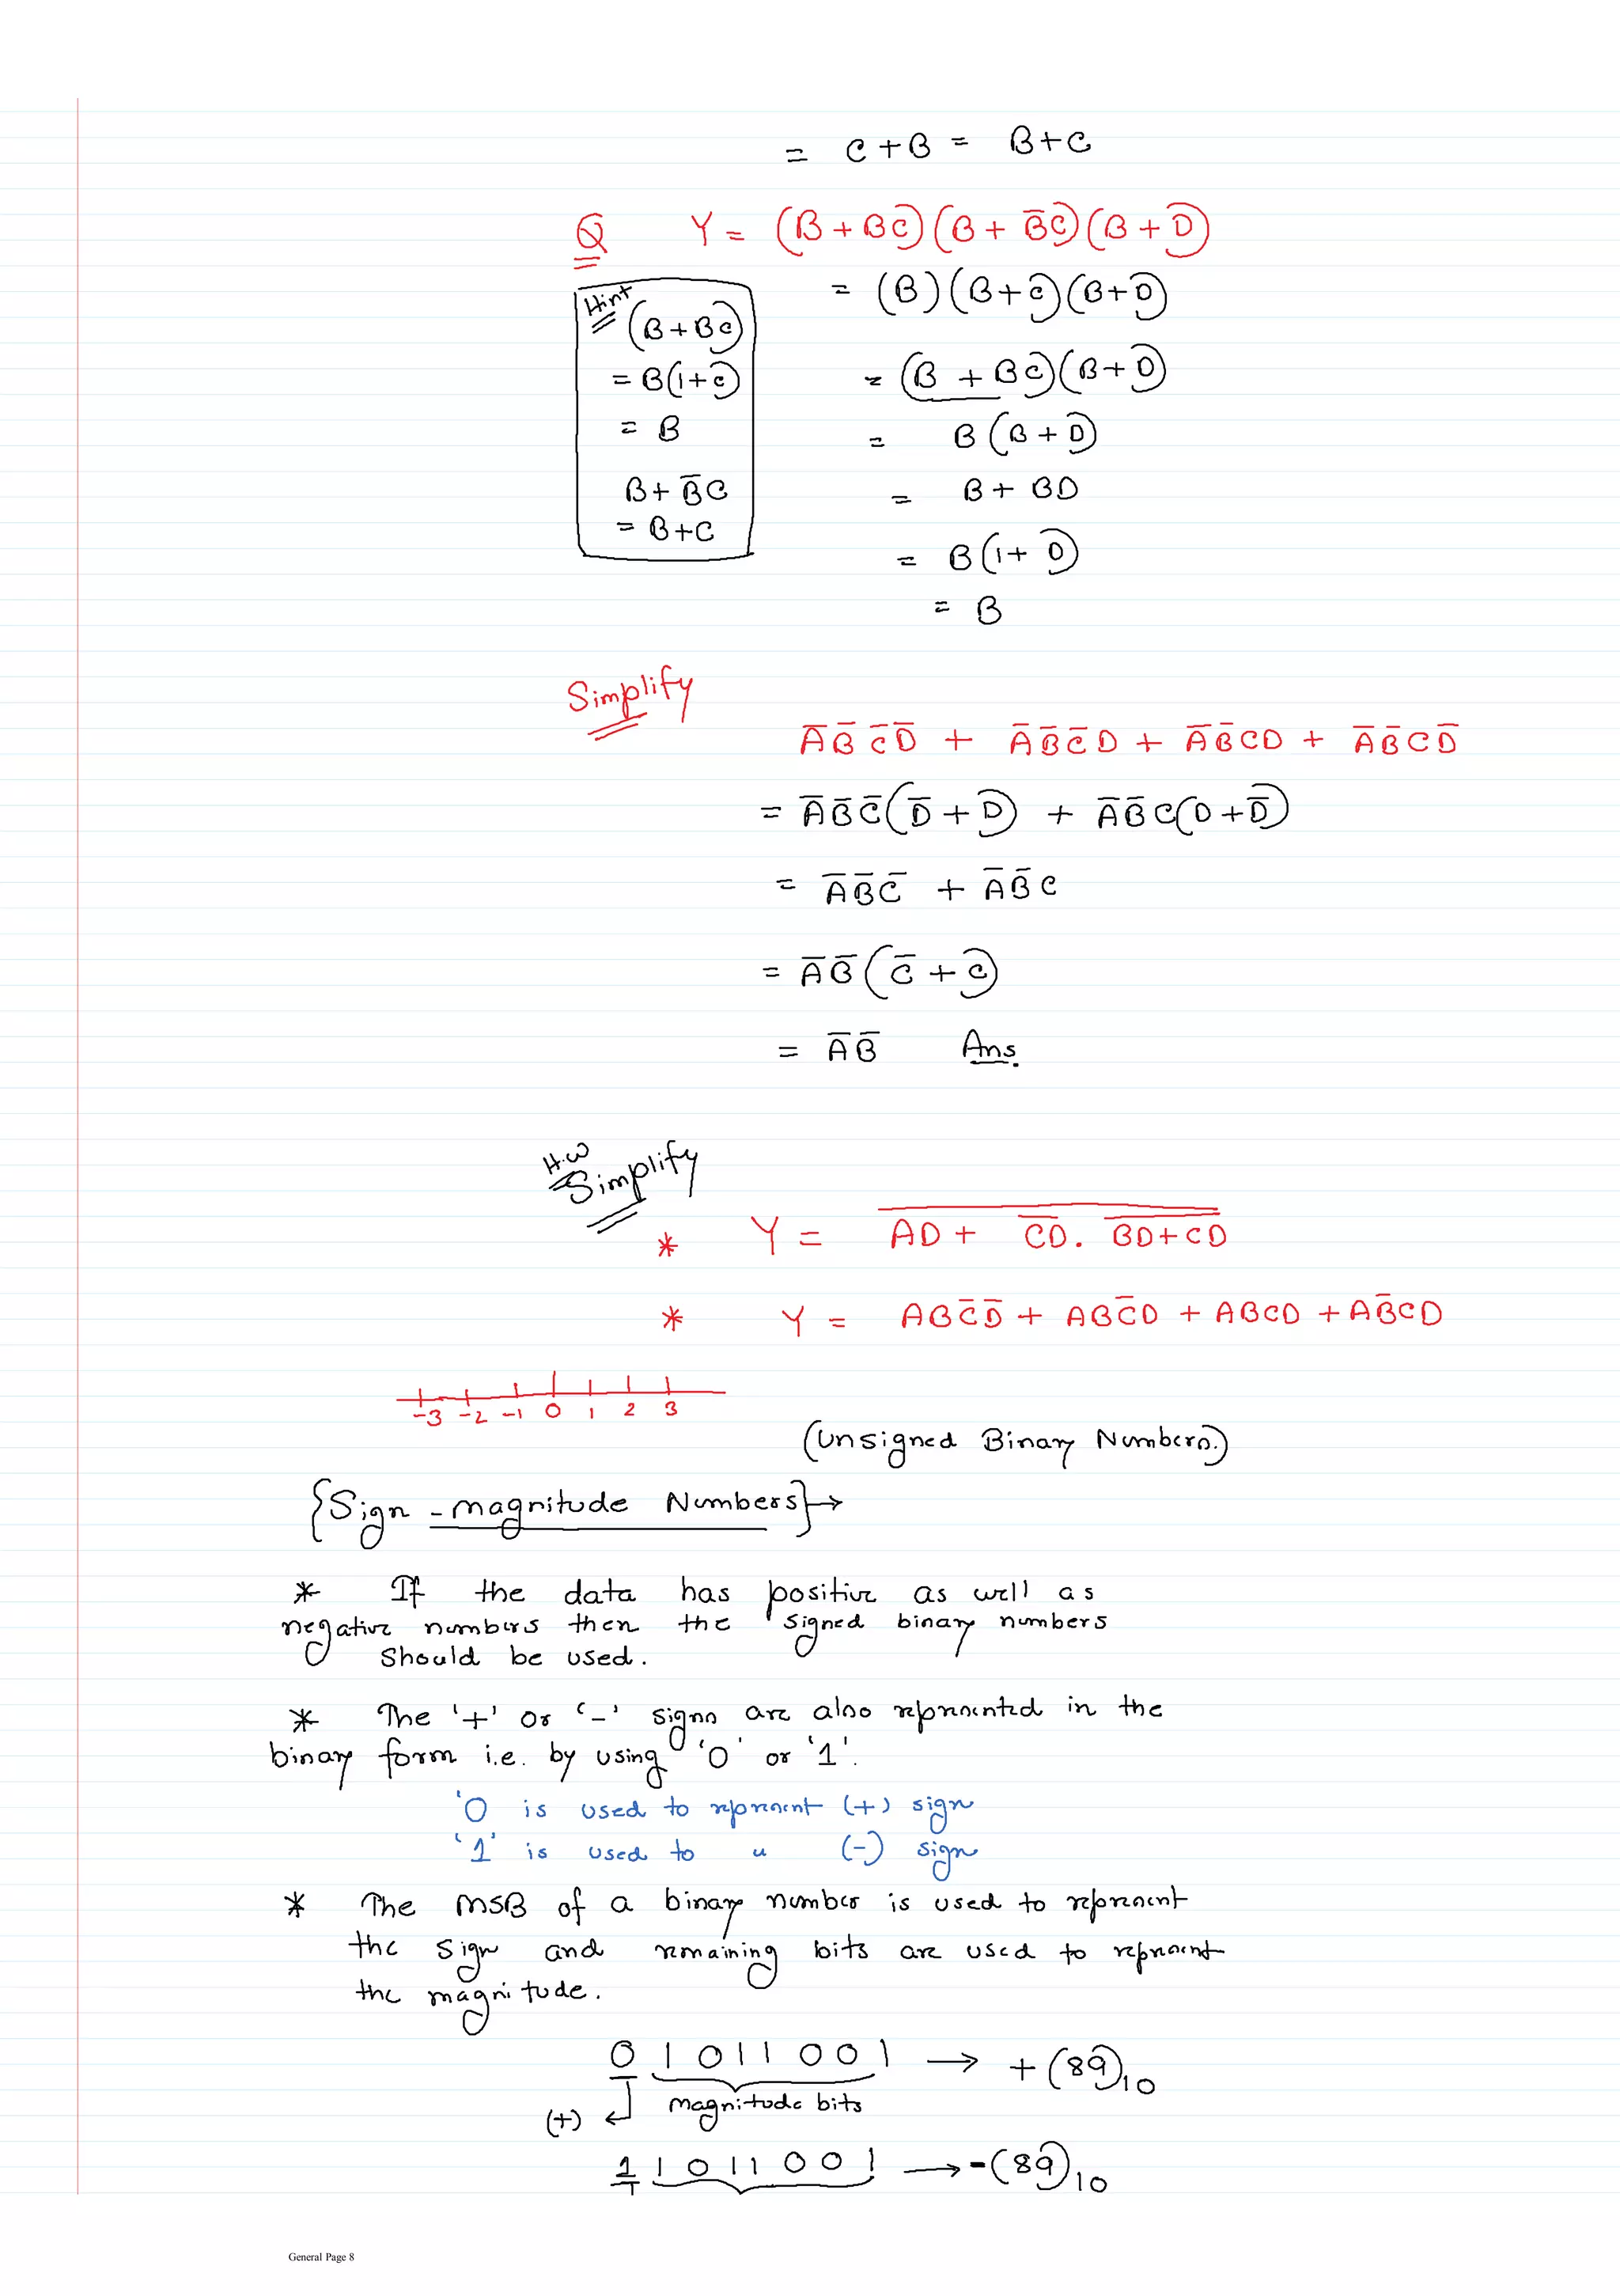 = C + B = B + C
Q Y = (B + BC)(B + B̅C)(B + D)
= (B)(B + C)(B + D)
Hint
(B + BC)
= (B + BC)(B + D)
= B(1 + C)
= B
= B(B + D)
B + B̅C
= B + BD
= B + C
= B(1 + D)
= B
Simplify
A̅B̅C̅D̅ + A̅B̅C̅D + A̅B̅CD + A̅B̅CD̅
= A̅B̅C̅(D̅ + D) + A̅B̅C(D + D̅)
= A̅B̅C̅ + A̅B̅C
= A̅B̅(C̅ + C)
= A̅B̅ Ans.
H.W
Simplify
* Y = \overline{AD + \overline{CD} . \overline{BD + CD}}
* Y = ABC̅D̅ + ABC̅D + ABCD + AB̅CD
-3 -2 -1 0 1 2 3
(Unsigned Binary Numbers.)
{Sign - magnitude Numbers} →
* If the data has positive as well as
negative numbers then the signed binary numbers
should be used.
* The '+' or '-' signs are also represented in the
binary form i.e. by using '0' or '1'.
'0 is used to represent (+) sign
'1' is used to " (-) sign
* The MSB of a binary number is used to represent
the sign and remaining bits are used to represent
the magnitude.
0 1 0 1 1 0 0 1 → + (89)10
(+) magnitude bits
1 1 0 1 1 0 0 1 → - (89)10
General Page 8